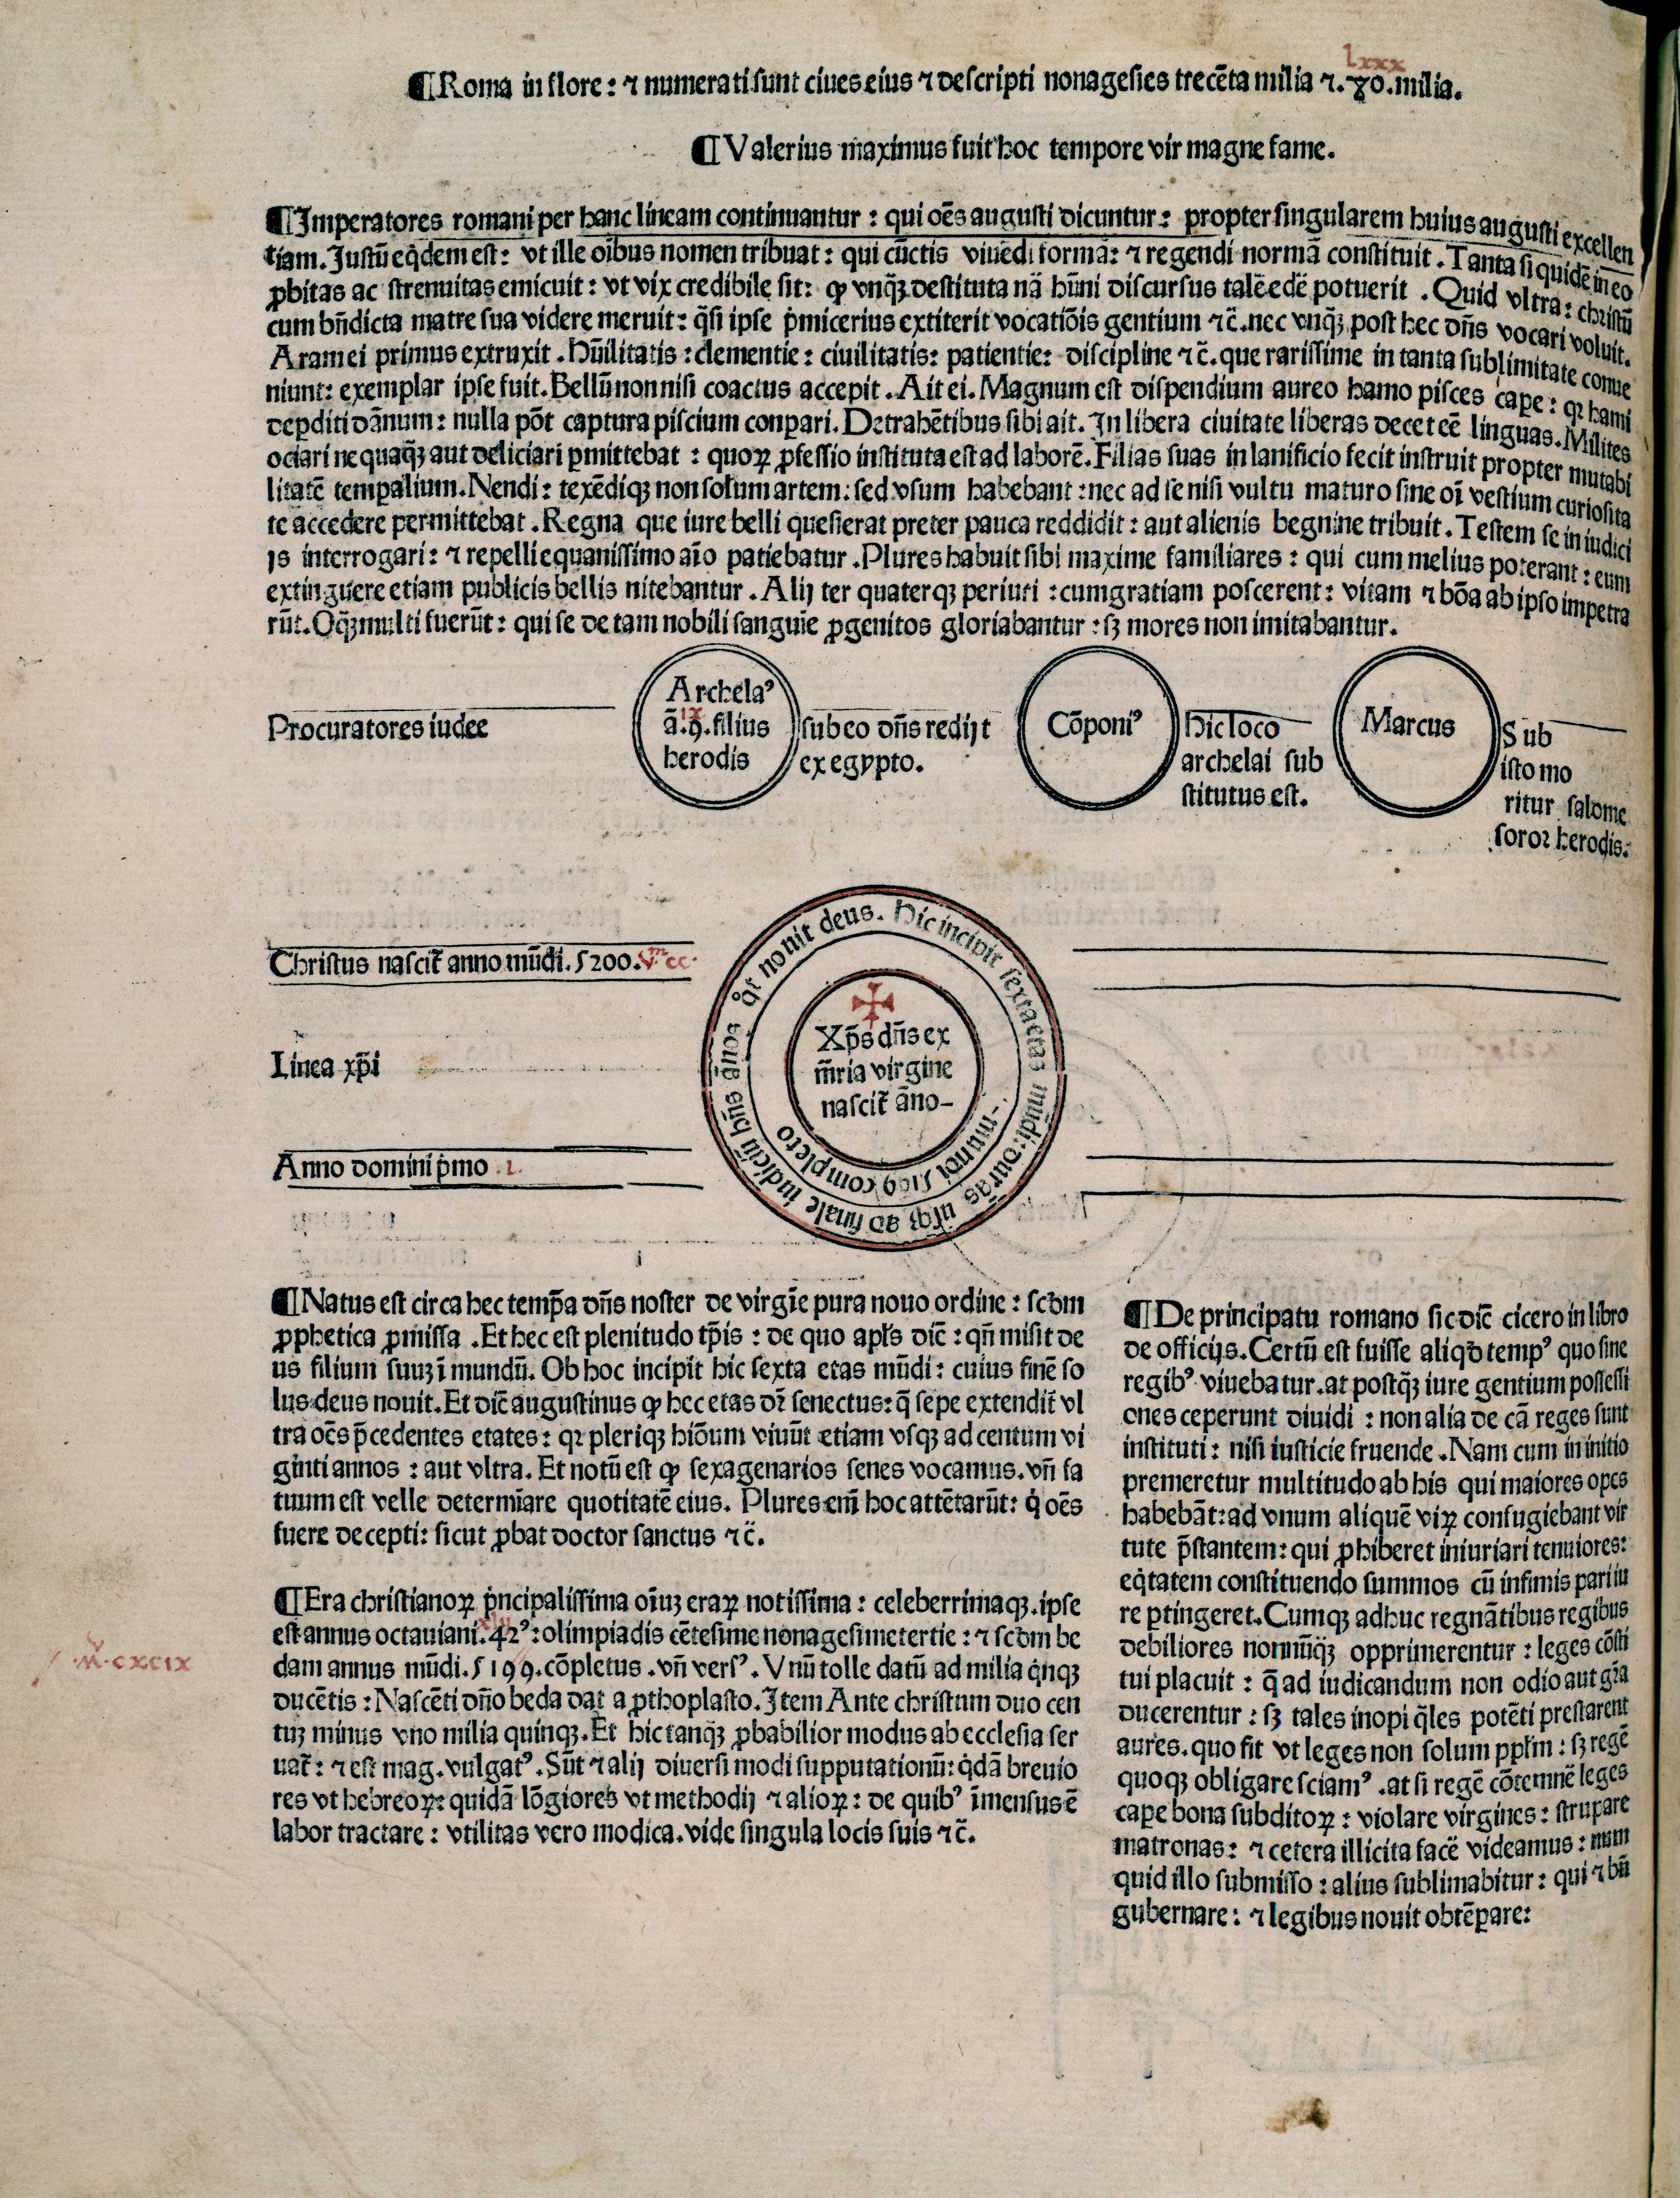 lxxx
¶Roma in flore: ⁊ numerati sunt ciues eius ⁊ descripti nonagesies trecēta milia ⁊.80.milia.
¶Valerius maximus fuit hoc tempore vir magne fame.
¶Imperatores romani per hanc lineam continuantur: qui oēs augusti dicuntur: propter singularem huius augusti excellen
tiam. Iustū eqdem est: vt ille oībus nomen tribuat: qui cūctis viuēdi formā: ⁊ regendi normā constituit. Tanta siquidē in eo
ꝓbitas ac strenuitas emicuit: vt vix credibile sit: ꝙ vnqꝫ destituta nā hūni discursus talē edē potuerit. Quid vltra: christū
cum bn̄dicta matre sua videre meruit: q̄si ipse pͥmicerius extiterit vocatiōis gentium ⁊c̄. nec vnqꝫ post hec dn̄s vocari voluit.
Aram ei primus extruxit. Hūilitatis: clementie: ciuilitatis: patientie: discipline ⁊c̄. que rarissime in tanta sublimitate conue
niunt: exemplar ipse fuit. Bellū nonnisi coactus accepit. Ait ei. Magnum est dispendium aureo hamo pisces cape: qꝛ hami
deꝑditi dānum: nulla pōt captura piscium conꝑari. Detrahētibus sibi ait. In libera ciuitate liberas decet eē linguas. Milites
ociari nequaqꝫ aut deliciari ꝑmittebat: quoꝝ ꝓfessio instituta est ad laborē. Filias suas in lanificio fecit instruit propter mutabi
litatē temꝑalium. Nendi: texēdiqꝫ non solum artem: sed vsum habebant: nec ad se nisi vultu maturo sine oī vestium curiosita
te accedere permittebat. Regna que iure belli quesierat preter pauca reddidit: aut alienis begnine tribuit. Testem se in iudici
js interrogari: ⁊ repelli equanissimo aīo patiebatur. Plures habuit sibi maxime familiares: qui cum melius poterant: eum
extinguere etiam publicis bellis nitebantur. Alij ter quaterqꝫ periuri: cum gratiam poscerent: vitam ⁊ bōa ab ipso impetra
rūt. Oqꝫ multi fuerūt: qui se de tam nobili sanguīe ꝓgenitos gloriabantur: sꝫ mores non imitabantur.
Procuratores iudee
Archelaꝰ
ix
ā.9.filius
herodis
sub eo dn̄s redijt
ex egypto.
Cōponiꝰ
Hic loco
archelai sub
stitutus est.
Marcus
Sub
isto mo
ritur salome
soror herodis.
Christus nascit̄ anno mūdi.5200. v.m cc.
Linea xp̄i
Anno domini pͥmo .i.
Hic incipit sexta etas mūdi: durās usqꝫ ad finale iudiciū hn̄s ānos q̊t nouit deus.
Xp̄s dn̄s ex
m̄ria virgine
nascit̄ āno-
mundi 5199 completo
¶Natus est circa hec temp̄a dn̄s noster de virgīe pura nouo ordine: scdm
ꝓphetica ꝓmissa. Et hec est plenitudo tp̄is: de quo apl̄s dic̄: qn̄ misit de
us filium suuꝫ ī mundū. Ob hoc incipit hic sexta etas mūdi: cuius finē so
lus deus nouit. Et dic̄ augustinus ꝙ hec etas dr̄ senectus: q̄ sepe extendit̄ vl
tra oēs p̄cedentes etates: qꝛ pleriqꝫ hiōum viuūt etiam vsqꝫ ad centum vi
ginti annos: aut vltra. Et notū est ꝙ sexagenarios senes vocamus. vn̄ fa
tuum est velle determīare quotitatē eius. Plures em̄ hoc attētarūt: qͥ oēs
fuere decepti: sicut ꝓbat doctor sanctus ⁊c̄.
¶Era christianoꝝ pͥncipalissima oīuꝫ eraꝝ notissima: celeberrimaqꝫ. ipse
est annus octauiani.42ꝰ: olimpiadis cētesime nonagesime tertie: ⁊ scdm be
dam annus mūdi.5199.cōpletus. vn̄ versꝰ. Vnū tolle datū ad milia qͥnqꝫ
v.M.cxcix
ducētis: Nascēti dn̄o beda dat a ꝓthoplasto. Item Ante christum duo cen
tuꝫ minus vno milia quinqꝫ. Et hic tanqꝫ ꝓbabilior modus ab ecclesia ser
uat̄: ⁊ est mag. vulgatꝰ. Sūt ⁊ alij diuersi modi supputationū: qͥdā breuio
res vt hebreoꝝ: quidā lōgiores vt methodij ⁊ alioꝝ: de quibꝰ īmensus ē
labor tractare: vtilitas vero modica. vide singula locis suis ⁊c̄.
¶De principatu romano sic dic̄ cicero in libro
de officijs. Certū est fuisse aliqd tempꝰ quo sine
regibꝰ viuebatur. at postqꝫ iure gentium possessi
ones ceperunt diuidi: non alia de cā reges sunt
instituti: nisi iusticie fruende. Nam cum in initio
premeretur multitudo ab his qui maiores opes
habebāt: ad vnum aliquē viꝝ confugiebant vir
tute p̄stantem: qui ꝓhiberet iniuriari tenuiores:
eqͥtatem constituendo summos cū infimis pari iu
re ꝑtingeret. Cumqꝫ adhuc regnātibus regibus
debiliores nonnūqꝫ opprimerentur: leges cōsti
tui placuit: q̄ ad iudicandum non odio aut gr̄a
ducerentur: sꝫ tales inopi q̄les potēti prestarent
aures. quo fit vt leges non solum ppl̄m: sꝫ regē
quoqꝫ obligare sciamꝰ. at si regē cōtemnē leges
cape bona subditoꝝ: violare virgines: strupare
matronas: ⁊ cetera illicita facē videamus: num
quid illo submisso: alius sublimabitur: qui ⁊ bn̄
gubernare: ⁊ legibus nouit obtēꝑare: